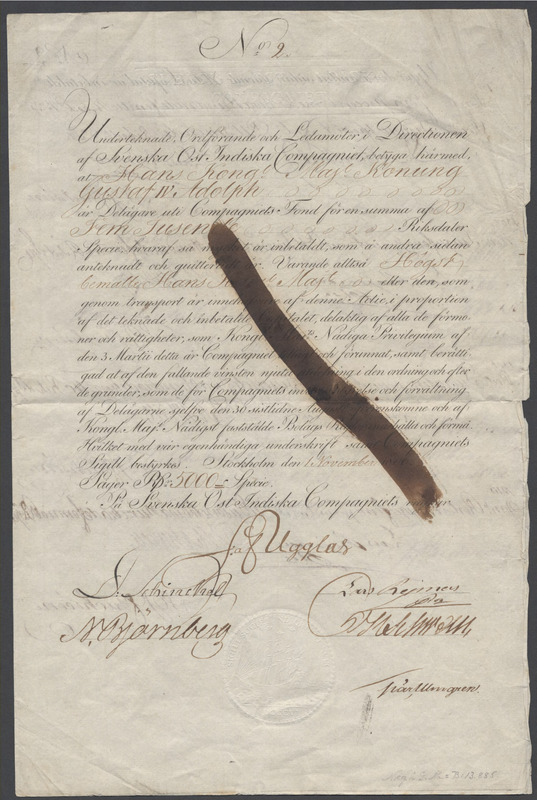 No 2.
Underteknade, Ordförande och Ledamöter, i Directionen
af Svenska Ost Indiska Compagniet, betyga härmed,
at Hans Kongl. Maj.t Konung
Gustaf IV Adolph
är Delägare uti Compagniets Fond för en summa af
Fem Tusende Riksdaler
Specie, hvaraf så mycket är inbetaldt, som å andra sidan
anteknadt och quitteradt är. Varande altså Högst
bemälte Hans Maj.t eller den, som
genom transport är innehafvare af denne Actie, i proportion
af det teknade och inbetalte delaktig af alla de förmo-
ner och rättigheter, som Kongl. Nådiga Privilegium af
den 3 Martii detta år Compagniet förunnat, samt berätti-
gad at af den fallande vinsten njuta i den ordning och efter
de grunder, som de för Compagniets och förvaltning
af Delägarne sjelfve den 30 sistledne och af
Kongl. Maj.t Nådigst faststälde Bolags och förmå
Hvilket med vår egenhändiga underskrift samt Compagniets
Sigill, bestyrkes. Stockholm den 1 November
Säger Rd 5000 Specie.
På Svenska Ost Indiska Compagniets
Ugglas
N. Bjarnberg